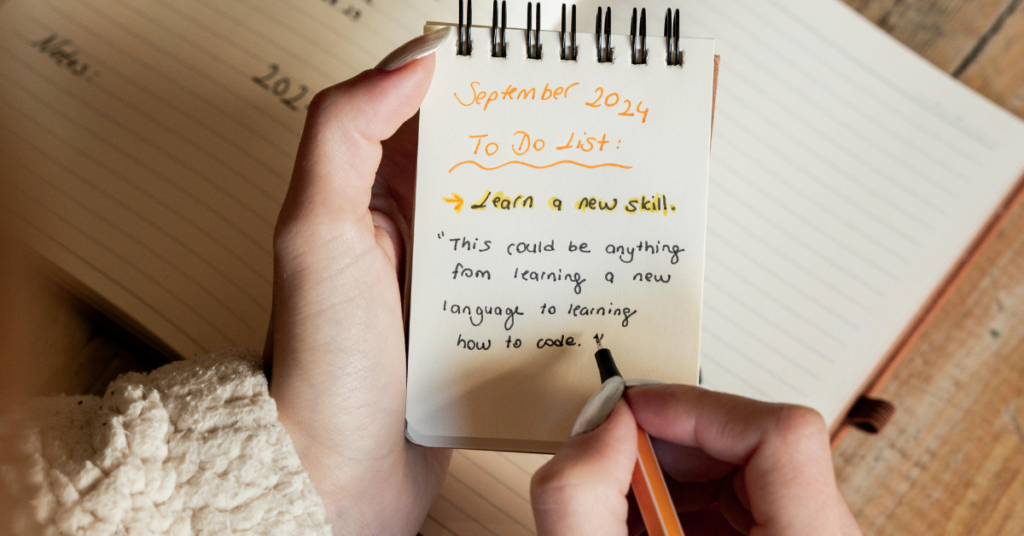 Notes:
202
September 2024
To Do List:
→ Learn a new skill.
"This could be anything
from learning a new
language to learning
how to code."